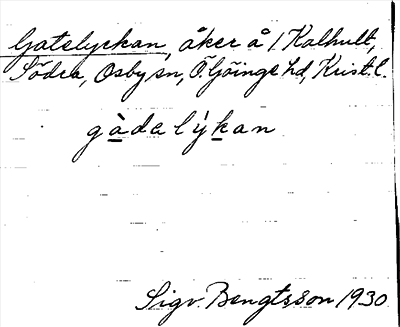 Gatelyckan, åker å 1 Kalhult,
Södra, Osby sn, Ö. Göinge hd, Krist. l.
gàdelýkan
Sigv. Bengtsson 1930